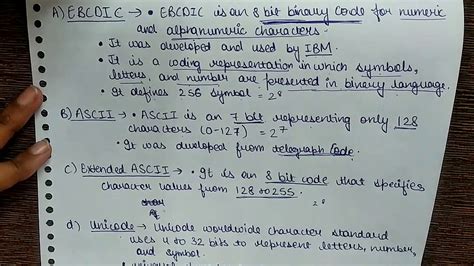 A) EBCDIC → • EBCDIC is an 8 bit binary code for numeric
and alphanumeric characters.
• It was developed and used by IBM.
• It is a coding representation in which symbols,
letters, and number are presented in binary language.
• It defines 256 symbol = 2⁸
B) ASCII → • ASCII is an 7 bit representing only 128
characters (0-127) = 2⁷
• It was developed from telegraph code.
c) Extended ASCII → • It is an 8 bit code that specifies
character values from 128 to 255.
2⁸
d) Unicode → Unicode worldwide character standard
uses 4 to 32 bits to represent letters, number,
and symbol.